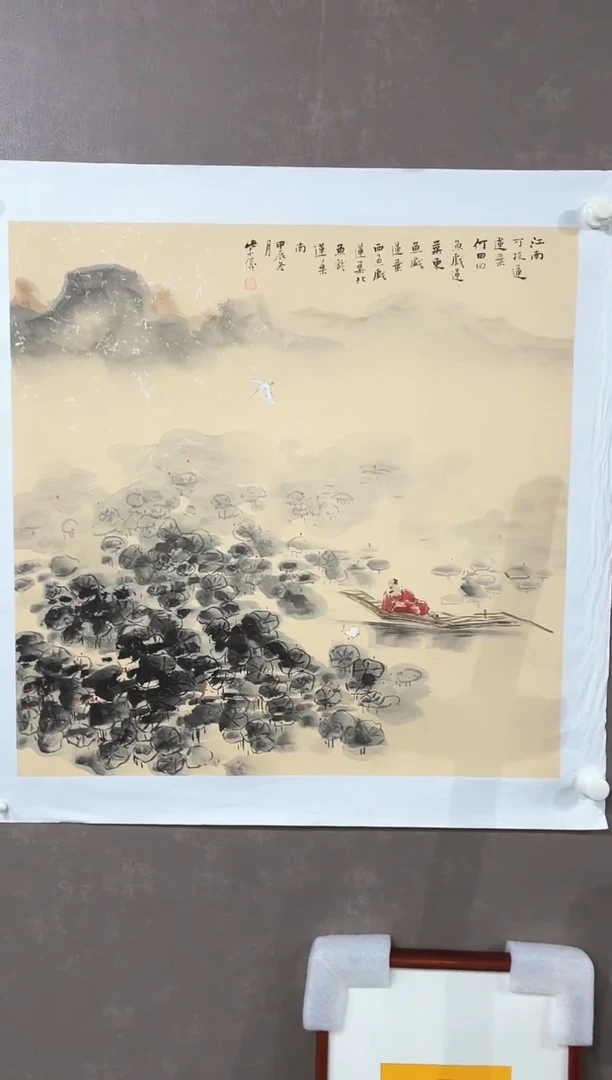 江南
可採連
蓮葉
何田田
魚戲連
葉東
魚戲
蓮葉
西魚戲
蓮葉北
魚戲
蓮葉
南
甲辰冬
月